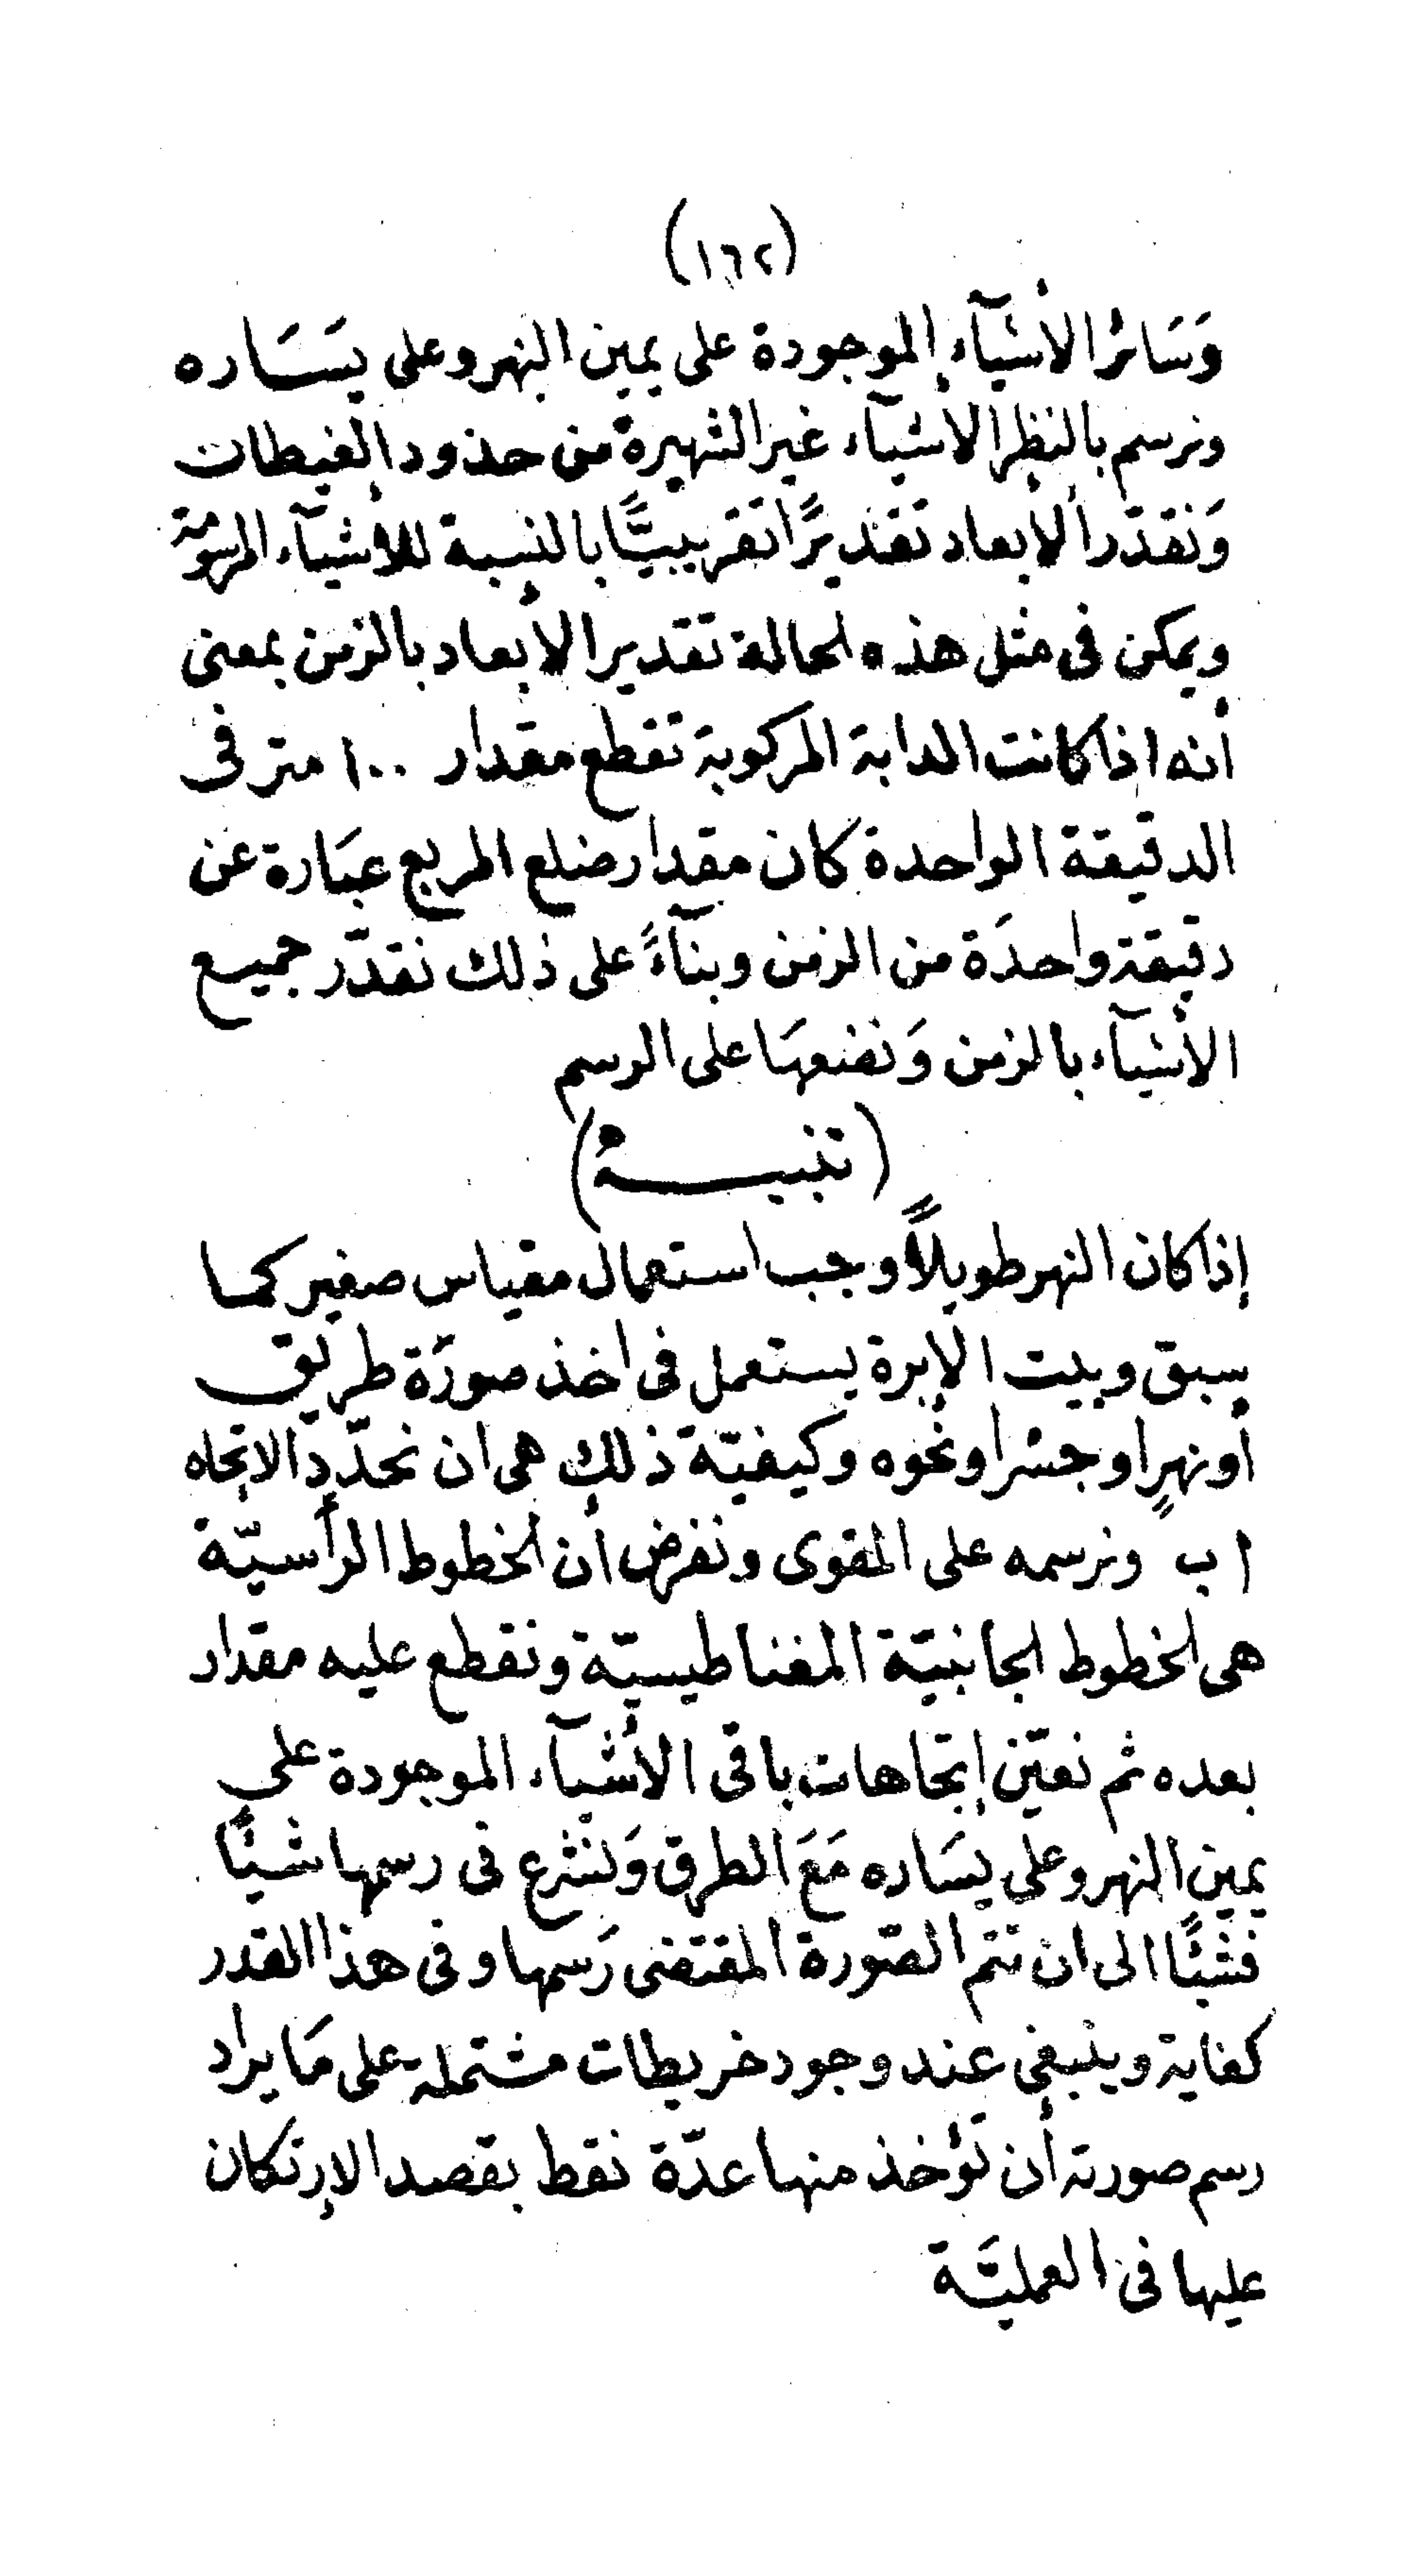 (١٦٢)
وَسَائر الأشيآء الموجودة على يمين النهر وعلى يسَاره
ونرسم بالنظر الأشيآء غير الشهيرة من حدود الغيطات
وَنقدّر الأبعاد تقديرًا تقريبيًّا بالنسبة للأشيآء المرسومة
ويمكن فى مثل هذه الحالة تقدير الأبعاد بالزمن بمعنى
أنه اذا كانت الدابة المركوبة تقطع مقدار ١٠٠ متر فى
الدقيقة الواحدة كان مقدار ضلع المربع عبَارة عن
دقيقة واحدَة من الزمن وبنآءً على ذلك نقدّر جميع
الأشيآء بالزمن وَنضعهَا على الرسم
(تنبيـــه)
إذا كان النهر طويلاً وجب استعمال مقياس صغير كما
سبق وبيت الإبرة يستعمل فى اخذ صورَة طريق
أو نهرٍ او جسر او نحوه وكيفيّة ذلك هى ان نحدّد الاتجاه
ا ب ونرسمه على المقوى ونفرض أن الخطوط الرأسيّة
هى الخطوط الجانبيّة المغناطيسيّة ونقطع عليه مقدار
بعده ثم نعيّن إتجاهات باقى الأشيآء الموجودة على
يمين النهر وعلى يسَاره مَعَ الطرق وَنشرع فى رسمها شيئًا
فشيئًا الى ان تتم الصّورة المقتضى رَسمها وفى هذا القدر
كفاية وينبغى عند وجود خريطات مشتملة على مَا يراد
رسم صورته أن تؤخذ منها عدّة نقط بقصد الإرتكان
عليها فى العمليَّة